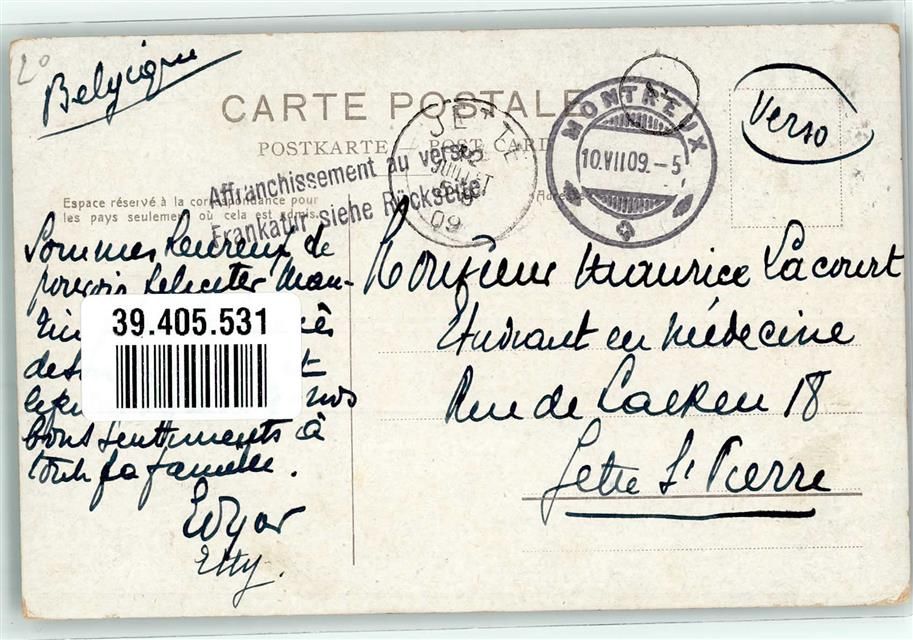 Belgique
CARTE POSTALE
POSTKARTE — POST CARD
Verso
JETTE
JUILLET
09
MONTREUX
10.VII09.-5
Affranchissement au verso.
Frankatur siehe Rückseite.
Espace réservé à la correspondance pour
les pays seulement où cela est admis.
Adresse
Sommes heureux de
pouvoir feliciter Mau-
39.405.531
nos
bons sentiments à
toute sa famille.
Edgar
Etty.
Monsieur Maurice Lacourt
Etudiant en Médecine
Rue de Laeken 18
Jette St Pierre